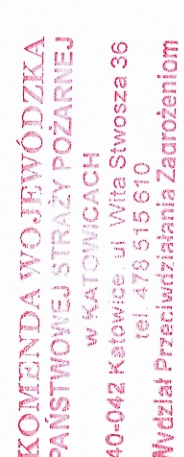 KOMENDA WOJEWÓDZKA
PAŃSTWOWEJ STRAŻY POŻARNEJ
w KATOWICACH
40-042 Katowice, ul. Wita Stwosza 36
tel. 478 515 610
Wydział Przeciwdziałania Zagrożeniom